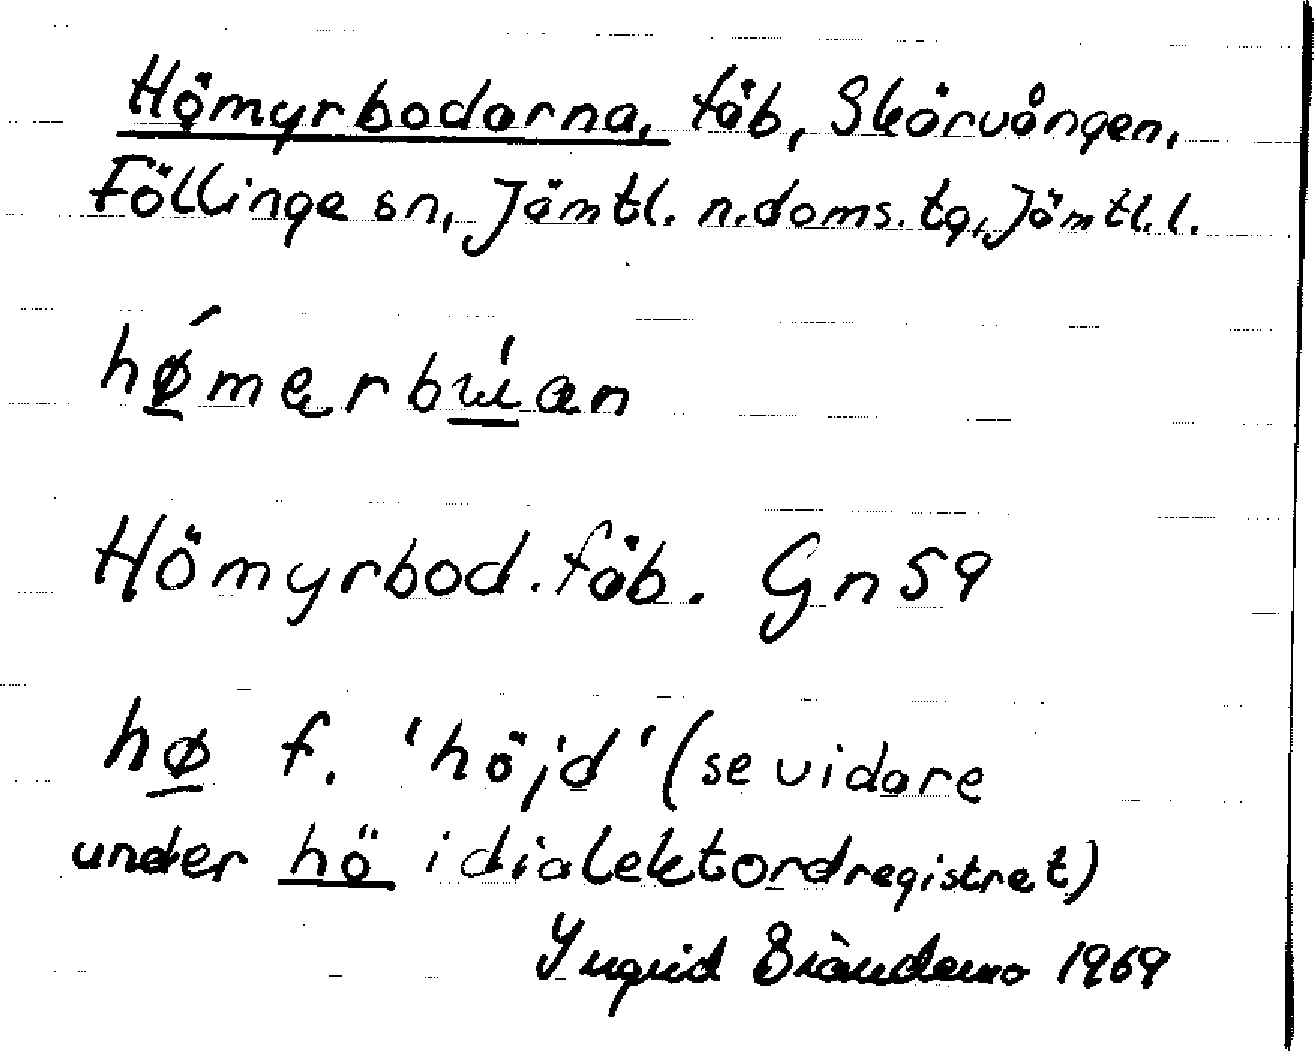 Hömyrbodarna, fäb, Skärvången,
Föllinge sn, Jämtl. n.doms.tg, Jämtl. l.
hǿmerbɯ́an
Hömyrbod. fäb. Gn 59
hø f. 'höjd' (se vidare
under hö i dialektordregistret)
Ingrid Brändemo 1969